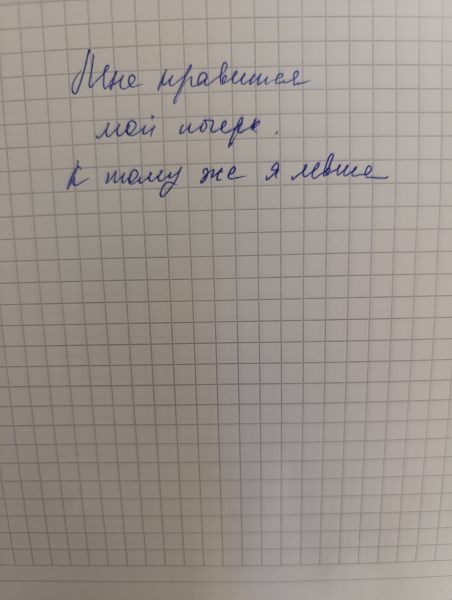 Мне нравится
мой почерк.
К тому же я левша